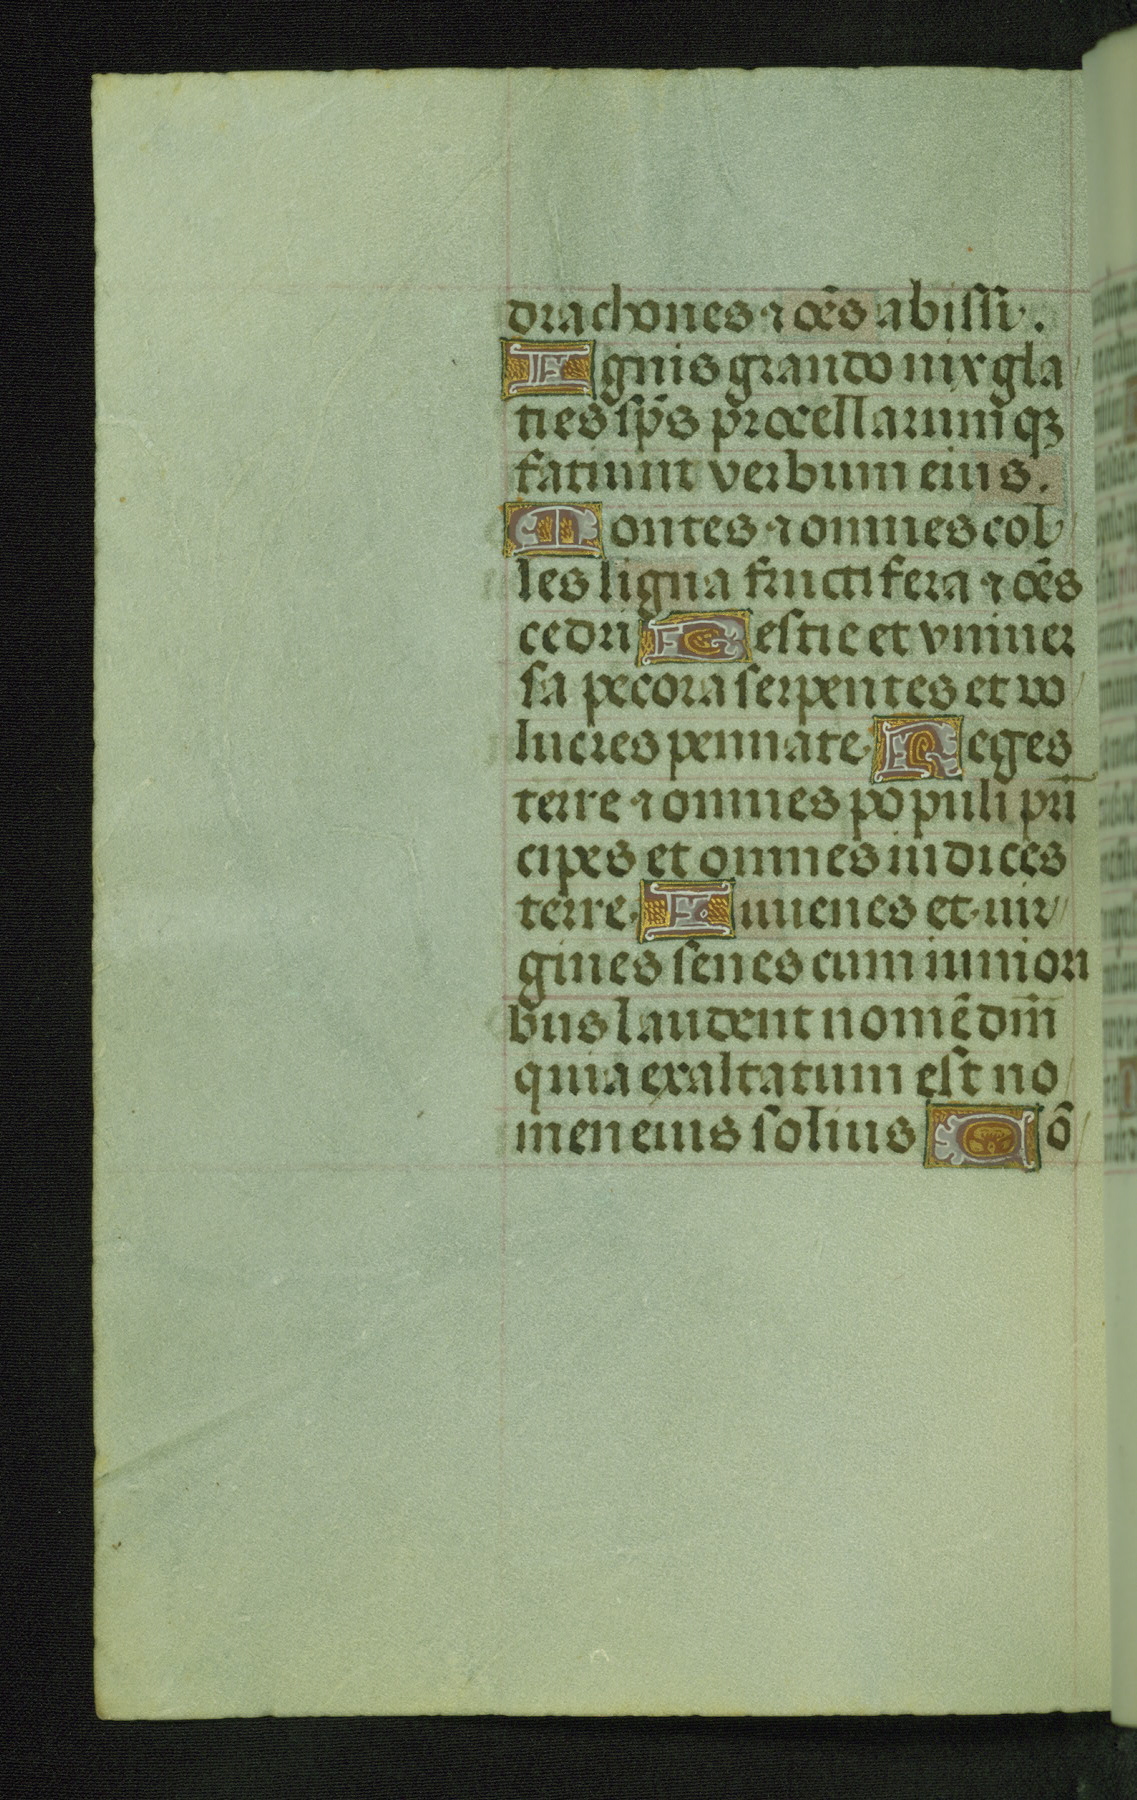 drachones ⁊ oe͂s abissi.
Ignis grando nix gla
ties sp̄s procellarum q̄ꝫ
fatiunt verbum eius.
Montes ⁊ omnes col
les ligna fructifera ⁊ oe͂s
cedri Bestie et vniuer
sa pecora serpentes et vo
lucres pennate Reges
terre ⁊ omnes populi pri͂
cipes et omnes iudices
terre Iuuenes et uir
gines senes cum iuniori
bus laudent nome͂ dn͂i
quia exaltatum est no
men eius solius Co͂